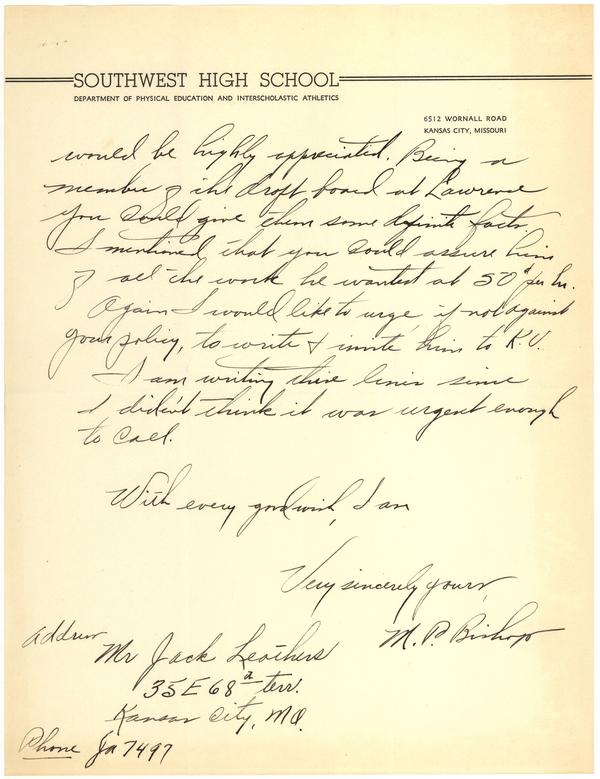 SOUTHWEST HIGH SCHOOL
DEPARTMENT OF PHYSICAL EDUCATION AND INTERSCHOLASTIC ATHLETICS
6512 WORNALL ROAD
KANSAS CITY, MISSOURI
would be highly appreciated. Being a
member of the draft board at Lawrence
you could give them some definite facts.
I mentioned that you could assure him
of all the work he wanted at 50¢ per hr.
Again I would like to urge, if not against
your policy, to write & invite him to K.U.
I am writing these lines since
I didn't think it was urgent enough
to call.
With every good wish, I am
Very sincerely yours,
M. P. Bishop
Address
Mr Jack Leathers
35 E 68th terr.
Kansas City, MO.
Phone Ja 7497